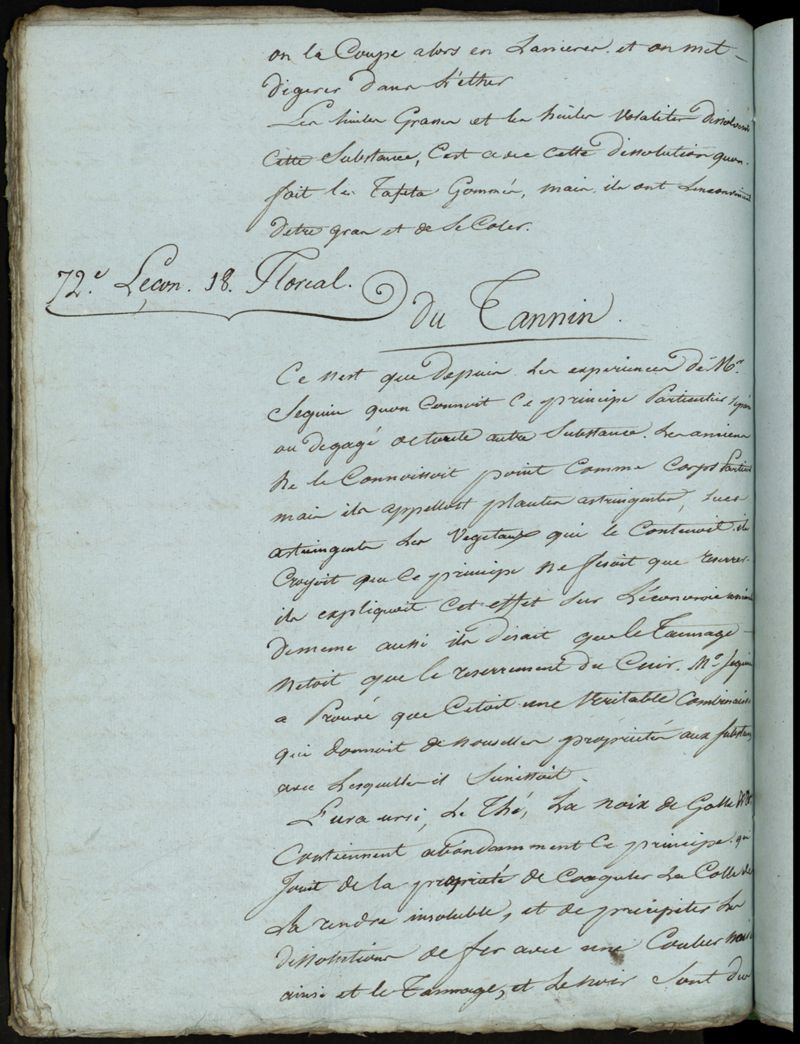 on la Coupe alors en Lanieres. et on met
digerer dans L'ether
Les huiles Grasses et les huiles volatiles dissolvent
cette Substance, C'est avec cette dissolution quon
fait les Tafeta Gommés, mais ils ont Linconvenient
detre gras et de Se Coler.
72.e Leçon. 18. Floreal.
du Tannin.
Ce nest que depuis Les experiences de Mr.
Seguin quon Connoit Ce principe Particulier
ou degagé de toute autre Substance. Les anciens
Ne le Connoissoit point comme Corps
mais ils appelloit plantes astringentes, Sucs
astringents Les Vegetaux qui le Contenoit. ils
Croyoit que Ce principe ne fesoit que reserrer.
ils expliquoit Cet effet Sur Léconomie
demême aussi ils disait que le Tannage
Netoit que le reserrement du Cuir. Mr. Seguin
a Prouvé que C'etoit une Veritable Combinaison
qui donnoit de nouvelles propriétés aux Substances
avec Lesquelles il Sunissoit.
Luva ursi, Le Thé, La noix de Galle
Contiennent abondamment Ce principe. qui
Jouit de la propriété de Coaguler La Colle de
La rendre insoluble, et de précipiter Les
dissolutions de fer avec une Couleur noire
ainsi et le Tannage, et Le noir Sont dus